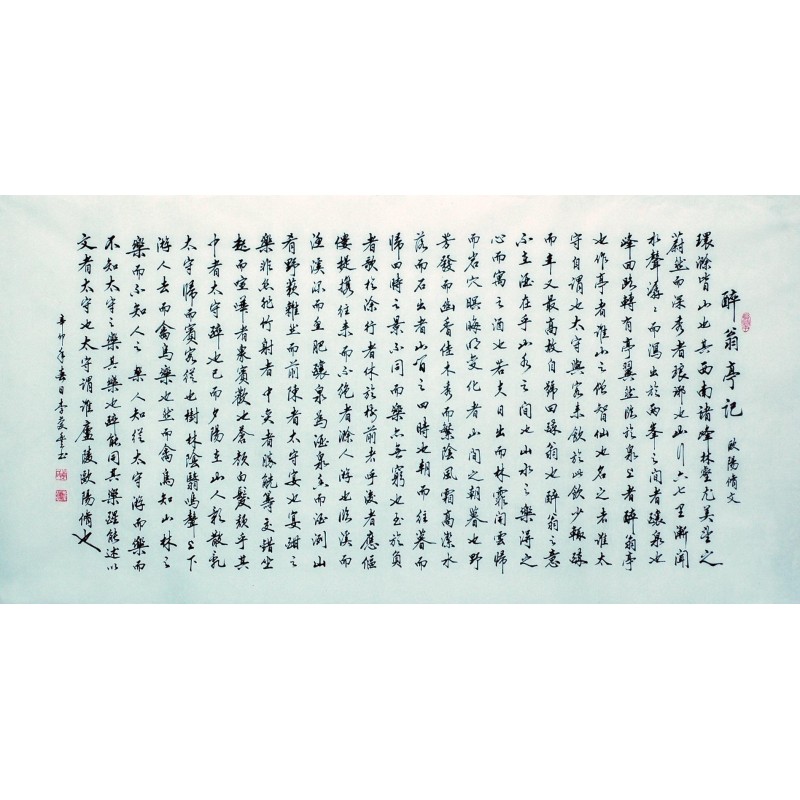 醉翁亭记
歐陽脩文
環滁皆山也其西南諸峰林壑尤美望之
蔚然而深秀者琅琊也山行六七里漸聞
水聲潺潺而瀉出於兩峯之間者釀泉也
峰回路轉有亭翼然臨於泉上者醉翁亭
也作亭者誰山之僧智仙也名之者誰太
守自謂也太守與客来飲於此飲少輒醉
而年又最高故自號曰醉翁也醉翁之意
不在酒在乎山水之间也山水之樂得之
心而寓之酒也若夫日出而林霏開雲歸
而岩穴暝晦明变化者山間之朝暮也野
芳發而幽香佳木秀而繁陰風霜高潔水
落而石出者山間之四時也朝而往暮而
歸四時之景不同而樂亦無窮也至於負
者歌於塗行者休於樹前者呼後者應傴
僂提攜往来而不絶者滁人游也臨溪而
漁溪深而魚肥釀泉為酒泉香而酒洌山
肴野蔌雜然而前陳者太守宴也宴酣之
樂非絲非竹射者中奕者勝觥籌交錯坐
起而喧嘩者衆賓歡也蒼顏白髮頹乎其
中者太守醉也已而夕陽在山人影散亂
太守歸而賓客從也樹林陰翳鳴聲上下
游人去而禽鳥樂也然而禽鳥知山林之
樂而不知人之樂人知從太守游而樂而
不知太守之樂其樂也醉能同其樂醒能述以
文者太守也太守謂誰廬陵歐陽脩也
辛卯年春日李